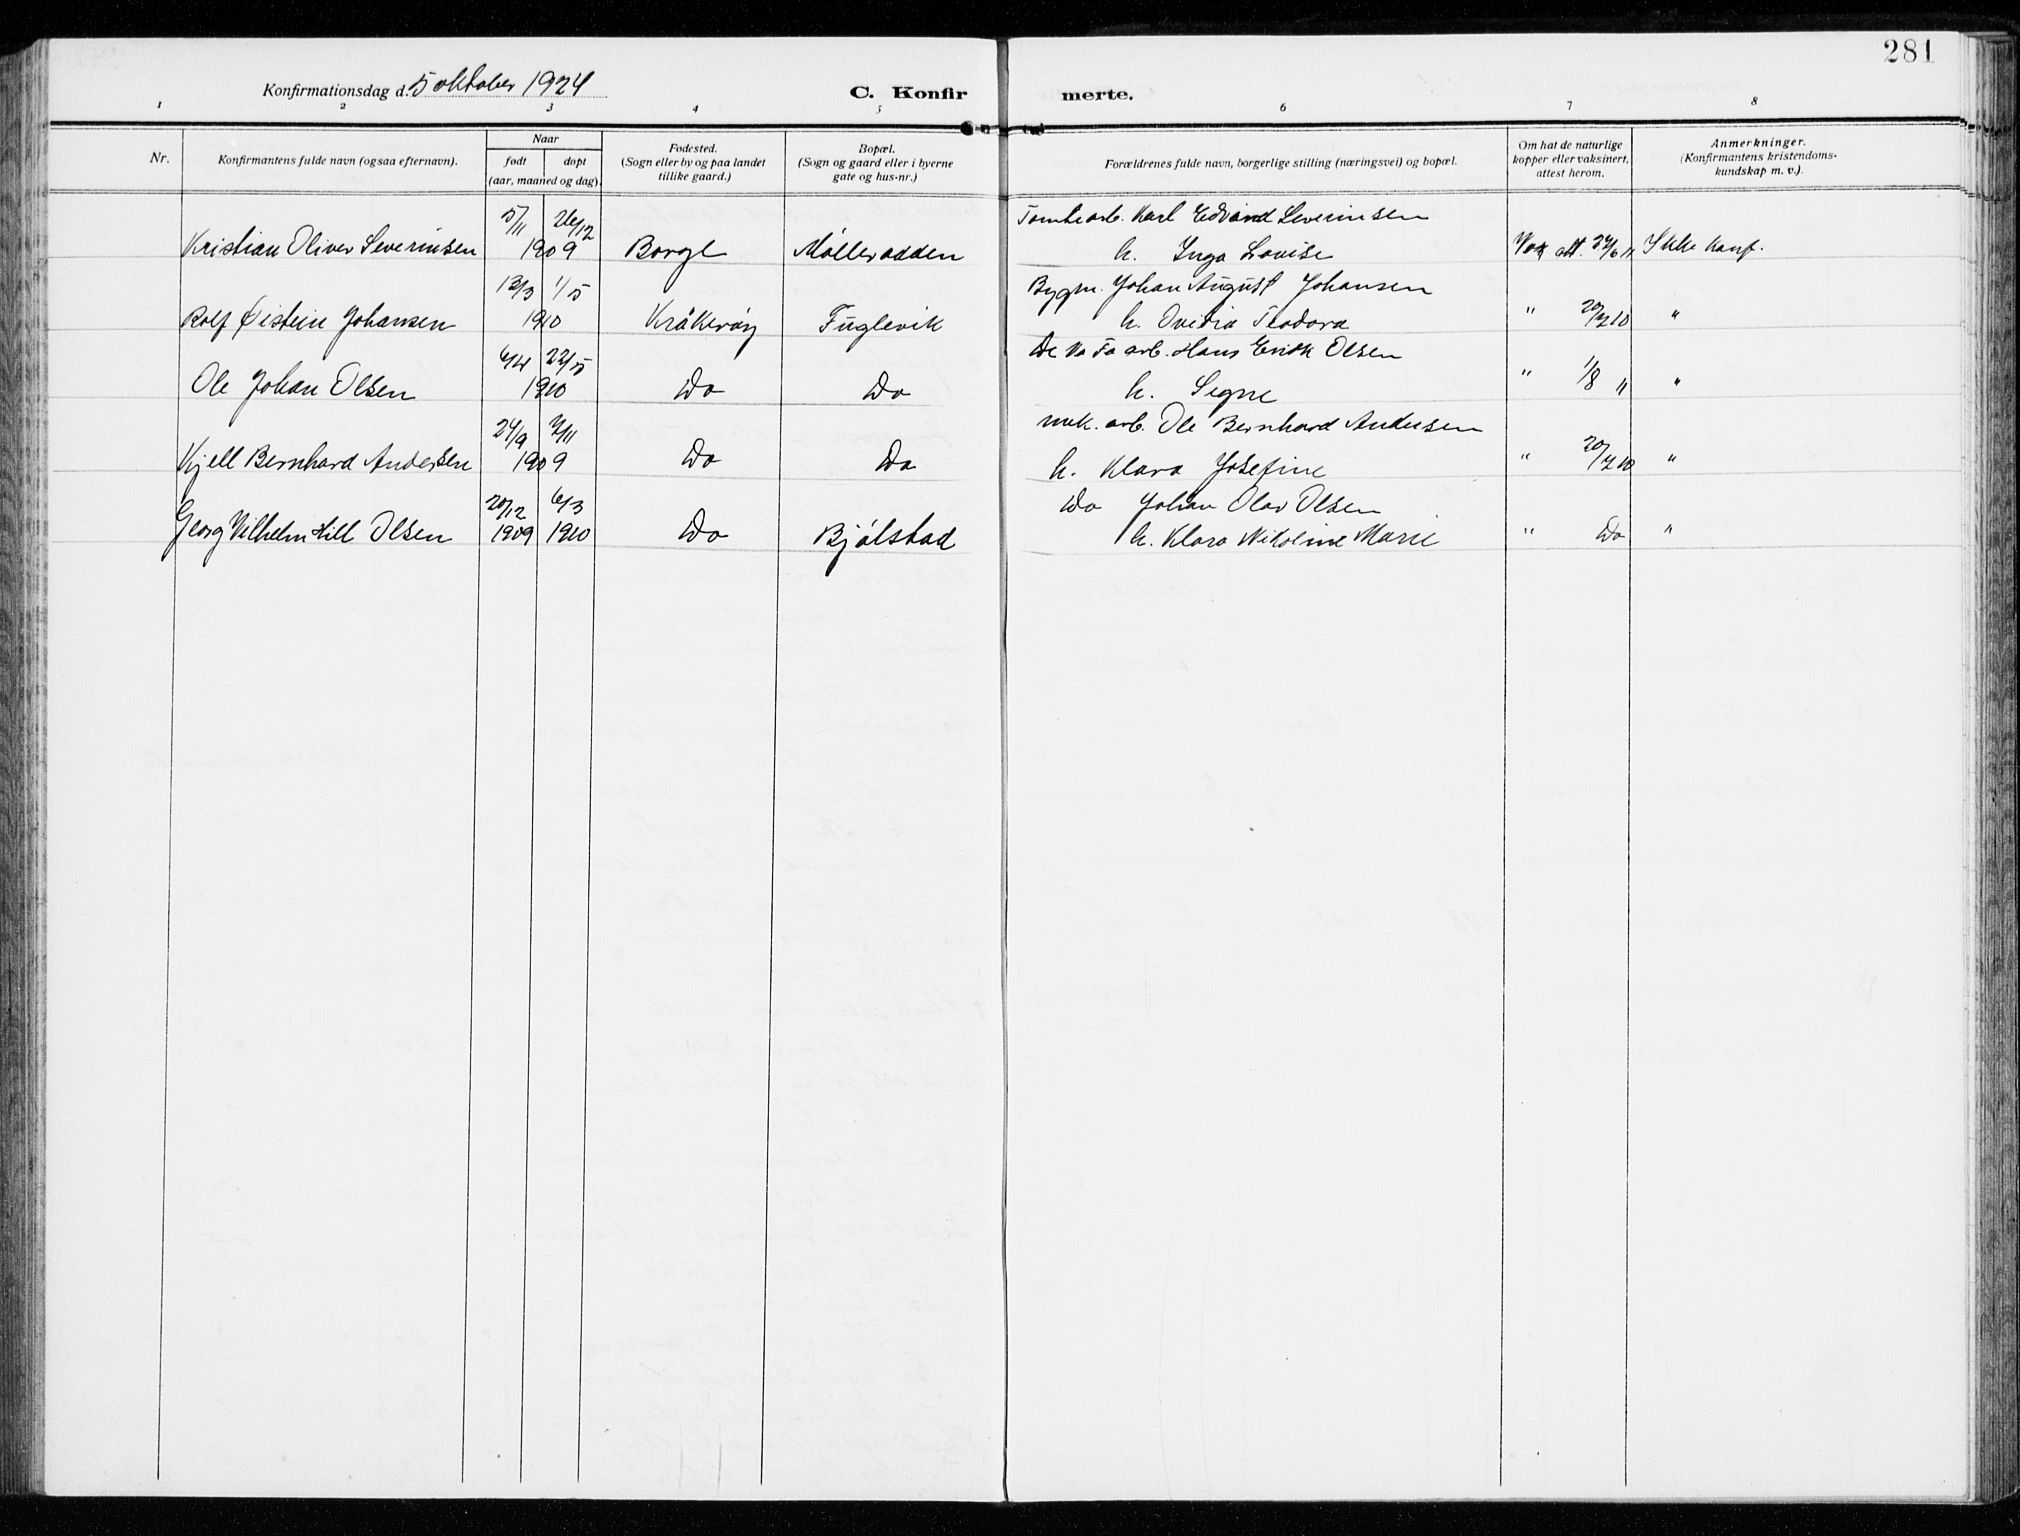 281
Konfirmationsdag d. 5 oktober 1924
C. Konfir merte.
1 2 3 4 5 6 7 8
Nr.
Konfirmantens fulde navn (ogsaa efternavn).
Naar
født døpt
(aar, maaned og dag).
Fødested.
(Sogn eller by og paa landet
tillike gaard.)
Bopæl.
(Sogn og gaard eller i byerne
gate og hus-nr.)
Forældrenes fulde navn, borgerlige stilling (næringsvei) og bopæl.
Om hat de naturlige
kopper eller vaksinert,
attest herom.
Anmerkninger.
(Konfirmantens kristendoms-
kundskap m. v.).
5/11 26/12 Tomtearb. Karl Edvard Severinsen
Kristian Oliver Severinsen 1909 Borge Mølleradden h. Inga Lovise Vax att. 24/6 11 Ikke konf.
13/3 1/5 Bygm. Johan August Johansen
Rolf Øistein Johansen 1910 Kråkerøy Fuglevik h. Ovidia Teodora " 20/7 10 "
6/4 22/5 De No Fa arb. Hans Erik Olsen
Ole Johan Olsen 1910 Do Do h. Signe " 1/8 " "
24/9 7/11 mek. arb. Ole Bernhard Andersen
Kjell Bernhard Andersen 1909 Do Do h. Klara Josefine " 20/7 10 "
20/12 6/3 Do Johan Olav Olsen
Georg Vilhelm Hill Olsen 1909 1910 Do Bjølstad h. Klara Nikoline Marie " Do "